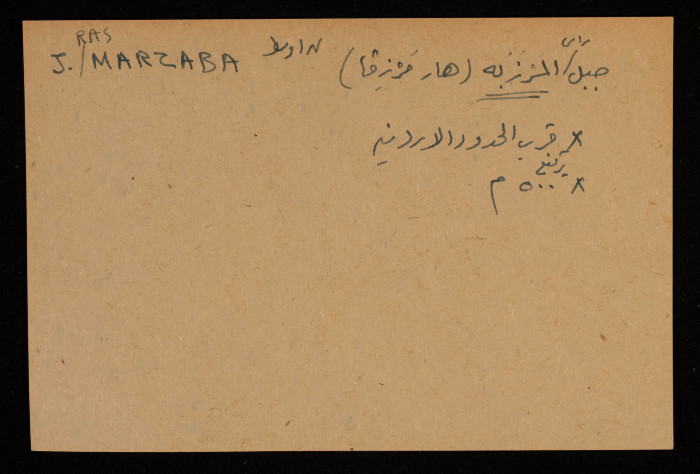 RAS
J. / MARZABA
راس
جبل / المَرْزَبَه (هار مَرْزِڤا)
x قرب الحدود الاردنيه
x يرتفع ٥٠٠ م